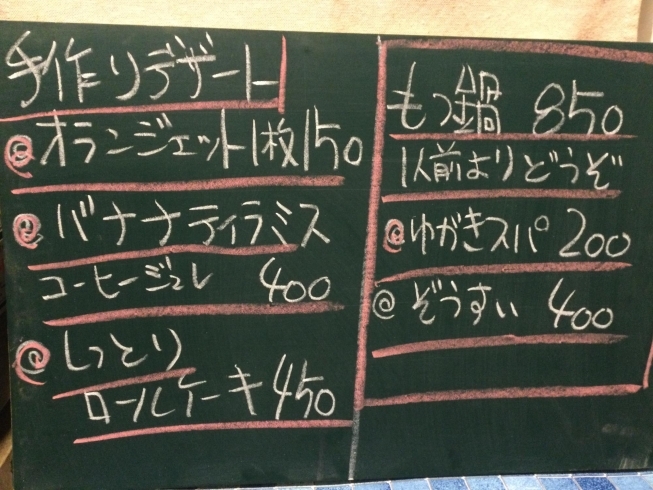 手作りデザート
@オランジェット1枚150
@バナナティラミス
コーヒージュレ 400
@しっとり
ロールケーキ450
もつ鍋 850
1人前よりどうぞ
@ゆがきスパ 200
@ぞうすい 400